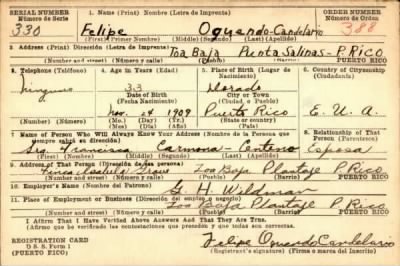 SERIAL NUMBER 1. Name (Print) Nombre (Letra de Imprenta) ORDER NUMBER
Número de Serie Número de Orden
330 Felipe Oquendo-Candelario 388
(First) (Primer Nombre) (Middle) (Segundo) (Last) (Apellido)
2. Address (Print) Dirección (Letra de Imprenta)
Toa Baja Punta Salinas-P. Rico
Number and street (Número y calle) (Town) (Pueblo) PUERTO RICO
3. Telephone (Teléfono) 4. Age in Years (Edad) 5. Place of Birth (Lugar de Nacimiento) 6. Country of Citizenship (Ciudadanía)
Ninguno 33 Dorado
DATE OF BIRTH City or Town
(Fecha Nacimiento) (Ciudad o Pueblo)
Nov. 1909 Puerto Rico E. U. A.
(Mo.) (Mes) (Day) (Día) (Yr.) (Año) (State or country)
7. Name of Person Who Will Always Know Your Address (Nombre de la Persona que siempre sabrá su dirección) 8. Relationship of That Person (Parentesco)
Sra. Francisca Carmona-Centeno Esposa
(First) (Primer Nombre) (Middle) (Segundo) (Last) (Apellido)
9. Address of That Person (Dirección de esa persona)
Finca Toa Baja P Rico
Number and street (Número y calle) (Town) (Pueblo) PUERTO RICO
10. Employer's Name (Nombre del Patrono)
G. H. Wildman
11. Place of Employment or Business (Dirección del empleo o negocio)
Toa Baja P. Rico
Number and street (Número y calle) (Town) (Pueblo) PUERTO RICO
I Affirm That I Have Verified Above Answers And That They Are True.
(Afirmo que he verificado las contestaciones que preceden y que todas son correctas.
Felipe Oquendo Candelario
REGISTRATION CARD
D. S. S. Form 1 (Registrant's signature) (Firma o marca del Inscrito)